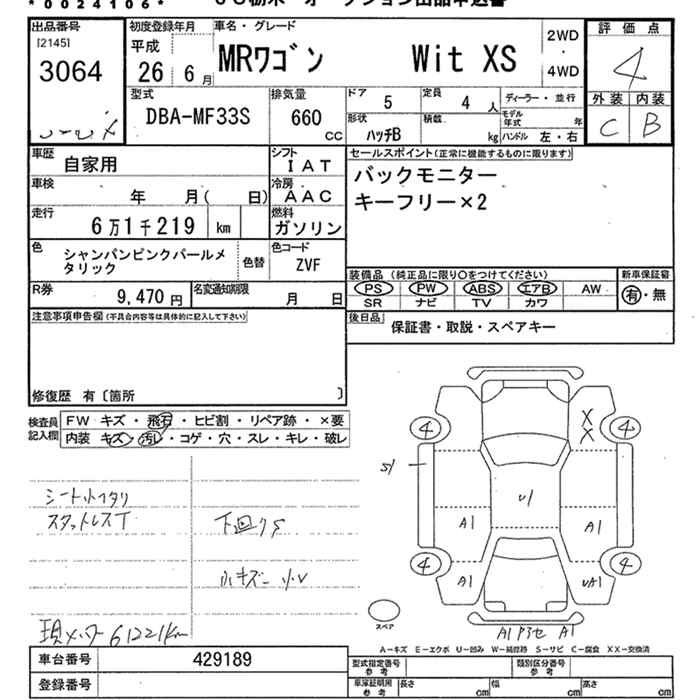 *0024106*
出品番号
[2145]
3064
初度登録年月
平成
26 6月
車名・グレード
MRワゴン Wit XS
2WD
・
4WD
評価点
4
外装 内装
C B
型式
DBA-MF33S
排気量
660
cc
ドア
5
定員
4 人
ディーラー・並行
形状
ハッチB
積載
kg
モデル年式 年
ハンドル 左・右
車歴
自家用
シフト
IAT
車検
年 月( 日)
冷房
AAC
走行
6万1千219 km
燃料
ガソリン
色
シャンパンピンクパールメタリック
色替
色コード
ZVF
R券
9,470円
名変通知期限
月 日
セールスポイント(正常に機能するものに限ります)
バックモニター
キーフリー×2
装備品 (純正品に限り○をつけてください)
PS PW ABS エアB AW
SR ナビ TV カワ
新車保証書
有・無
後日品
保証書・取説・スペアキー
注意事項申告欄(不具合内容等は具体的に記入して下さい)
修復歴 有〔箇所 〕
検査員記入欄
FW キズ・飛石・ヒビ割・リペア跡・×要
内装 キズ・汚レ・コゲ・穴・スレ・キレ・破レ
スタットレスT
下回りS
小キズ
現メーター 61221km
4
X
X
4
S1
U1
A1
A1
4
A1
UA1
4
A1
A1
スペア
A-キズ E-エクボ U-凹み W-補修跡 S-サビ C-腐食 XX-交換済
車台番号
429189
登録番号
型式指定番号
参考
類別区分番号
参考
車庫証明用
参考
長さ cm
幅 cm
高さ cm